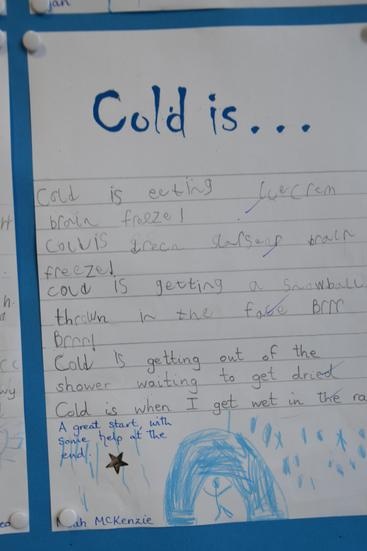 jan
Cold is...
Cold is eeting Icecrem
brain freeze!
Cold is brain
freeze!
cold is getting a snowball
thrown in the face Brrr
Brrrr!
Cold is getting out of the
shower waiting to get dried
Cold is when I get wet in the ra
A great start, with
some help at the
end.
ah McKenzie